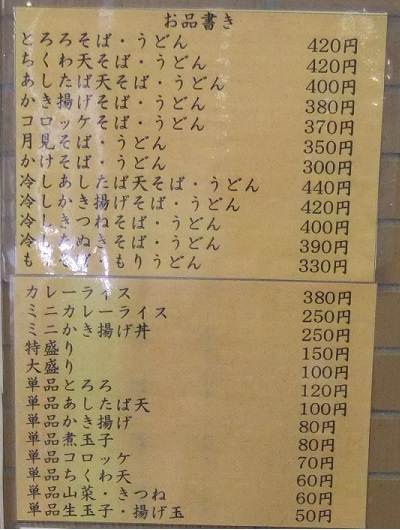 お品書き
とろろそば・うどん 420円
ちくわ天そば・うどん 420円
あしたば天そば・うどん 400円
かき揚げそば・うどん 380円
コロッケそば・うどん 370円
月見そば・うどん 350円
かけそば・うどん 300円
冷しあしたば天そば・うどん 440円
冷しかき揚げそば・うどん 420円
冷しきつねそば・うどん 400円
冷したぬきそば・うどん 390円
もりうどん 330円
カレーライス 380円
ミニカレーライス 250円
ミニかき揚げ丼 250円
特盛り 150円
大盛り 100円
単品とろろ 120円
単品あしたば天 100円
単品かき揚げ 80円
単品煮玉子 80円
単品コロッケ 70円
単品ちくわ天 60円
単品山菜・きつね 60円
単品生玉子・揚げ玉 50円